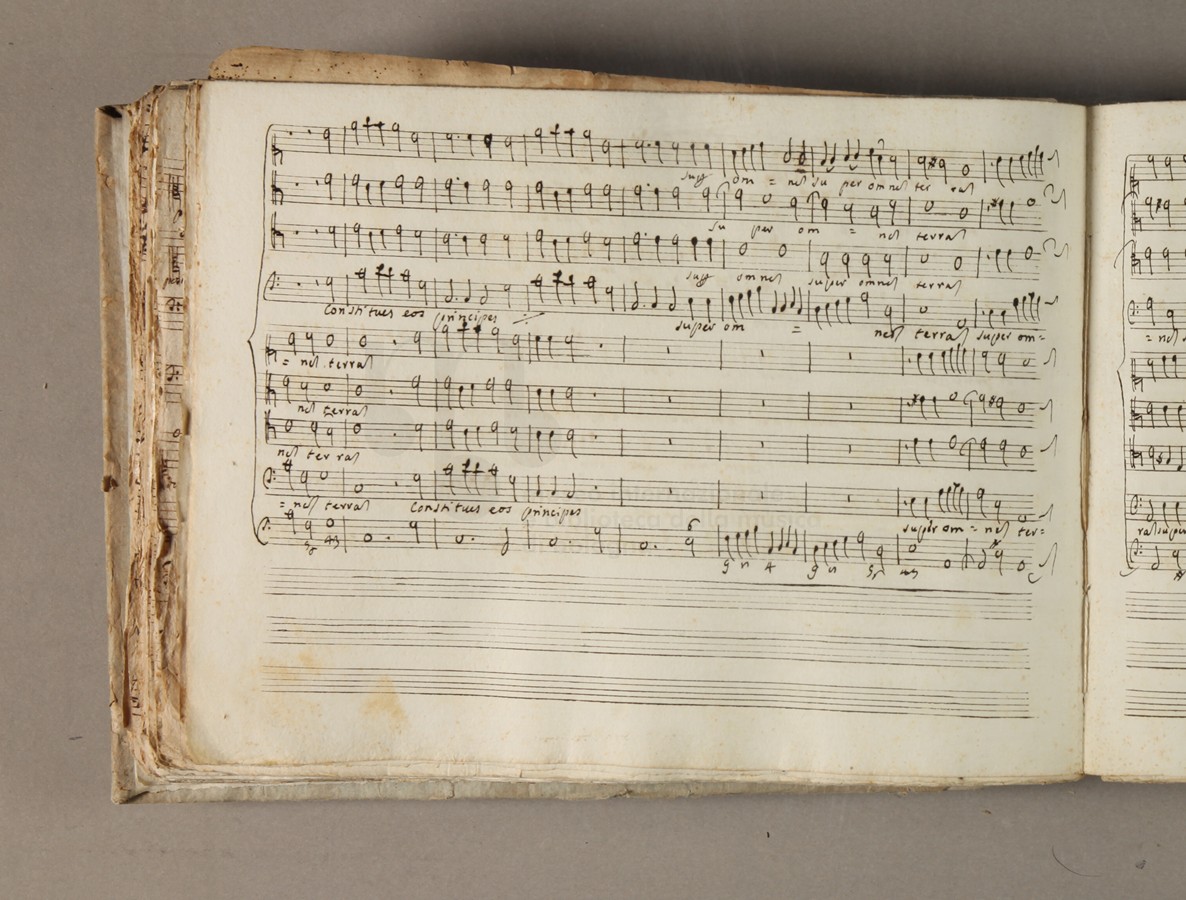 sup om = nes su per omnes ter ras
su per om = nes terras
sup omnes super omnes terras
Constitues eos principes super om = nes terras super om=
= nes terras
nes terras
nes ter ras
= nes terras Constitues eos principes super om = nes ter=
= nes
ras super